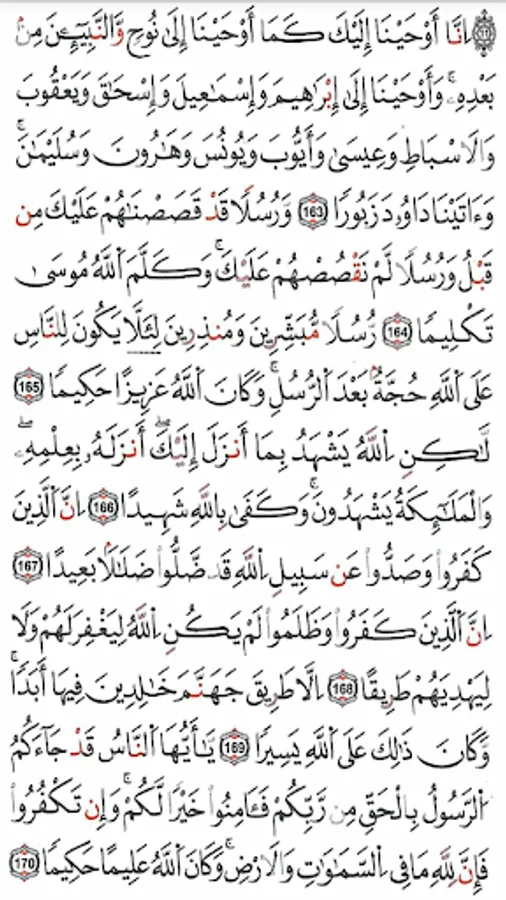 ۞ اِنَّا أَوْحَيْنَا إِلَيْكَ كَمَا أَوْحَيْنَا إِلَىٰ نُوحٍ وَالنَّبِيِّـۧنَ مِنۢ
بَعْدِهِۦۚ وَأَوْحَيْنَا إِلَىٰ إِبْرَٰهِيمَ وَإِسْمَٰعِيلَ وَإِسْحَٰقَ وَيَعْقُوبَ
وَالَاسْبَاطِ وَعِيسَىٰ وَأَيُّوبَ وَيُونُسَ وَهَٰرُونَ وَسُلَيْمَٰنَۚ
وَءَاتَيْنَا دَاوُۥدَ زَبُورًا 163 وَرُسُلًا قَدْ قَصَصْنَٰهُمْ عَلَيْكَ مِن
قَبْلُ وَرُسُلًا لَّمْ نَقْصُصْهُمْ عَلَيْكَۚ وَكَلَّمَ اَللَّهُ مُوسَىٰ
تَكْلِيمًا 164 رُّسُلًا مُّبَشِّرِينَ وَمُنذِرِينَ لِئَلَّا يَكُونَ لِلنَّاسِ
عَلَى اَللَّهِ حُجَّةٌۢ بَعْدَ اَلرُّسُلِۚ وَكَانَ اَللَّهُ عَزِيزًا حَكِيمًا 165
لَّٰكِنِ اِللَّهُ يَشْهَدُ بِمَا أَنزَلَ إِلَيْكَۖ أَنزَلَهُۥ بِعِلْمِهِۦۖ
وَالْمَلَٰٓئِكَةُ يَشْهَدُونَۚ وَكَفَىٰ بِاللَّهِ شَهِيدًا 166 اِنَّ اَلَّذِينَ
كَفَرُوا۟ وَصَدُّوا۟ عَن سَبِيلِ اِللَّهِ قَد ضَّلُّوا۟ ضَلَٰلَۢا بَعِيدًا 167
اِنَّ اَلَّذِينَ كَفَرُوا۟ وَظَلَمُوا۟ لَمْ يَكُنِ اِللَّهُ لِيَغْفِرَ لَهُمْ وَلَا
لِيَهْدِيَهُمْ طَرِيقًا 168 اِلَّا طَرِيقَ جَهَنَّمَ خَٰلِدِينَ فِيهَا أَبَدًاۚ
وَكَانَ ذَٰلِكَ عَلَى اَللَّهِ يَسِيرًا 169 يَٰٓأَيُّهَا اَلنَّاسُ قَدْ جَآءَكُمُ
اُلرَّسُولُ بِالْحَقِّ مِن رَّبِّكُمْ فَـَٔامِنُوا۟ خَيْرًا لَّكُمْۚ وَإِن تَكْفُرُوا۟
فَإِنَّ لِلَّهِ مَا فِى اِلسَّمَٰوَٰتِ وَالَارْضِۚ وَكَانَ اَللَّهُ عَلِيمًا حَكِيمًا 170